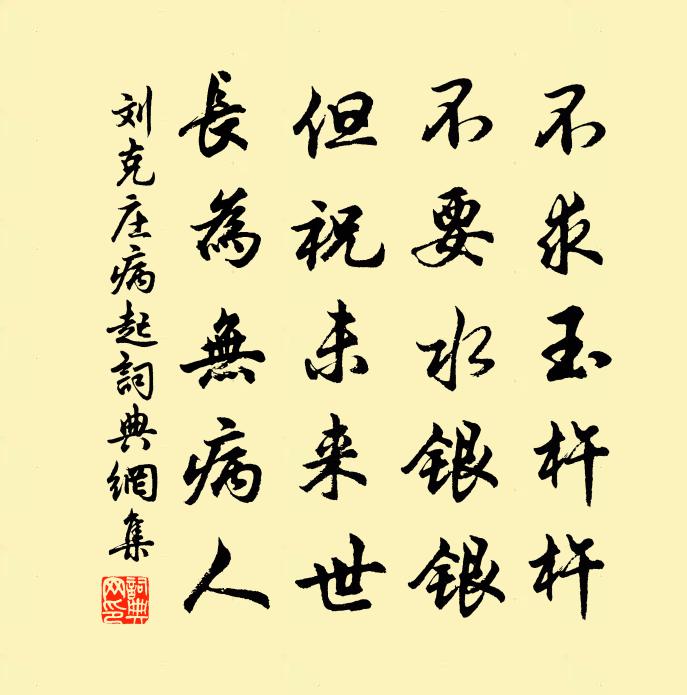 不求玉杵杵
不要水銀銀
但祝未来世
長為無病人
刘克庄病起詞典網集
詞典网印